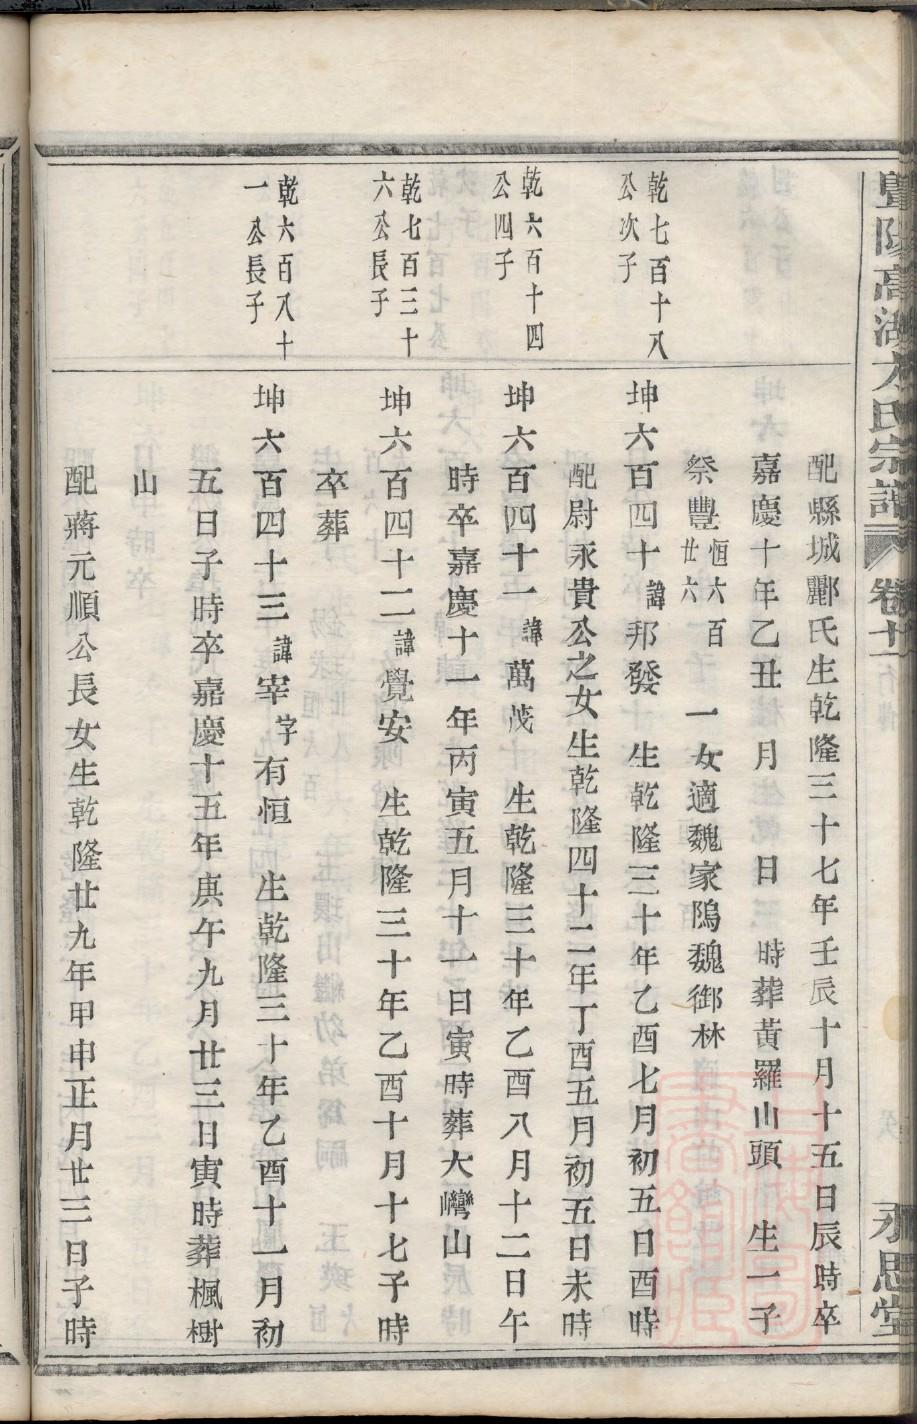 暨陽高湖方氏宗譜
卷十一
永思堂
配縣城酈氏生乾隆三十七年壬辰十月十五日辰時卒
嘉慶十年乙丑 月 日 時葬黃羅山頭 生一子
祭豐恒六百廿六 一女適魏家隖魏御林
乾七百十八
公次子
坤六百四十諱邦發 生乾隆三十年乙酉七月初五日酉時
配尉永貴公之女生乾隆四十二年丁酉五月初五日未時
乾六百十四
公四子
坤六百四十一諱萬茂 生乾隆三十年乙酉八月十二日午
時卒嘉慶十一年丙寅五月十一日寅時葬大灣山
乾七百三十
六公長子
坤六百四十二諱覺安 生乾隆三十年乙酉十月十七子時
卒葬
乾六百八十
一公長子
坤六百四十三諱宰字有恒 生乾隆三十年乙酉十一月初
五日子時卒嘉慶十五年庚午九月廿三日寅時葬楓樹
山
配蔣元順公長女生乾隆廿九年甲申正月廿三日子時